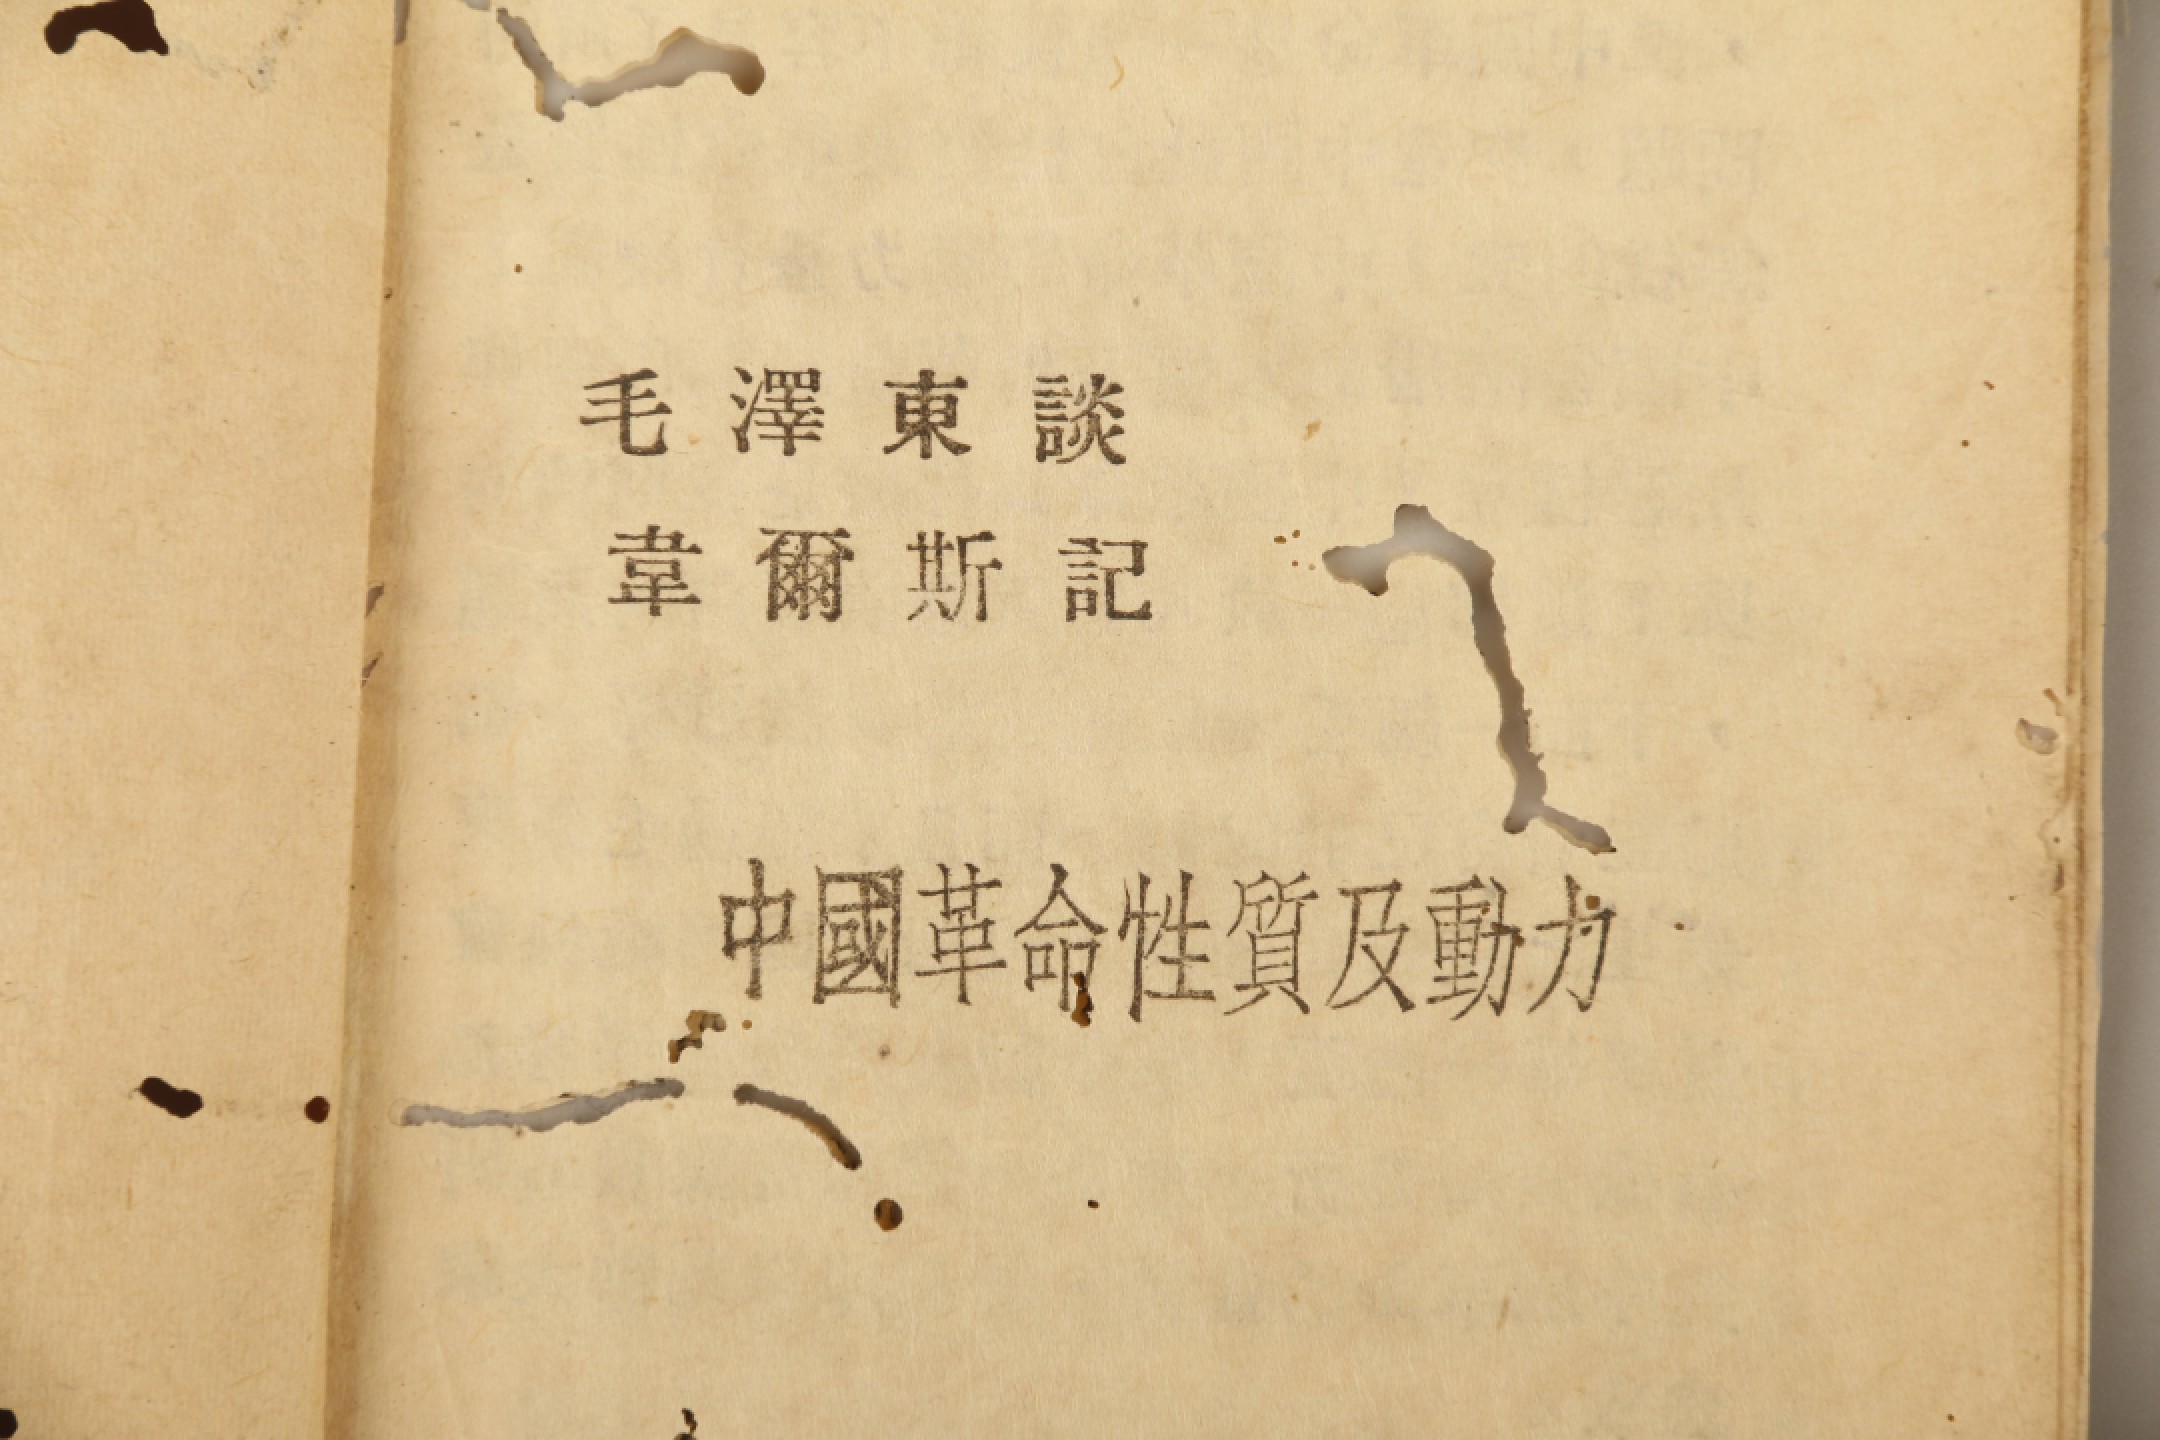 毛澤東談
韋爾斯記
中國革命性質及動力